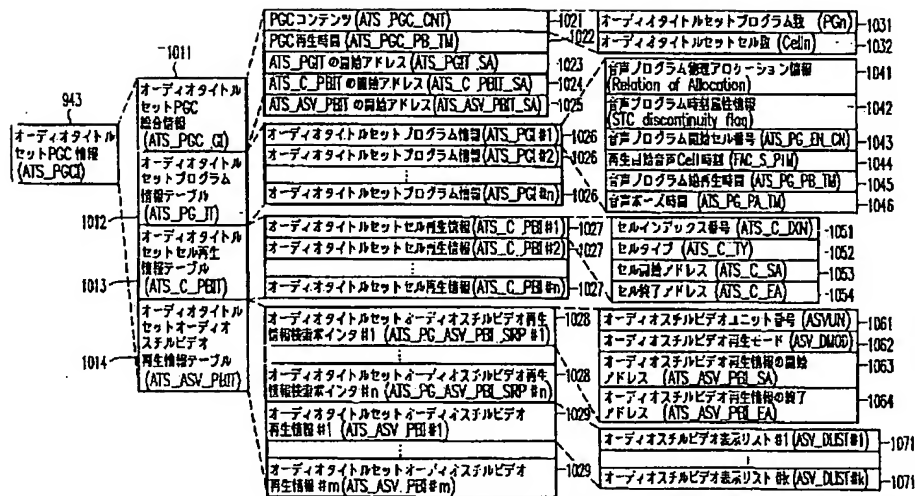 943
オーディオタイトル
セットPGC 情報
(ATS_PGCI)
1011
オーディオタイトル
セットPGC
総合情報
(ATS_PGC_GI)
オーディオタイトル
セットプログラム
情報テーブル
(ATS_PG_IT)
1012
オーディオタイトル
セットセル再生
情報テーブル
(ATS_C_PBIT)
1013
オーディオタイトル
セットオーディオ
スチルビデオ
再生情報テーブル
(ATS_ASV_PBIT)
1014
PGCコンテンツ (ATS_PGC_CNT)
1021
PGC再生時間 (ATS_PGC_PB_TM)
1022
ATS_PGITの開始アドレス(ATS_PGIT_SA)
1023
ATS_C_PBITの開始アドレス(ATS_C_PBIT_SA)
1024
ATS_ASV_PBITの開始アドレス(ATS_ASV_PBIT_SA)
1025
オーディオタイトルセットプログラム情報(ATS_PGI#1)
1026
オーディオタイトルセットプログラム情報(ATS_PGI#2)
1026
オーディオタイトルセットプログラム情報(ATS_PGI#n)
1026
オーディオタイトルセットセル再生情報(ATS_C_PBI#1)
1027
オーディオタイトルセットセル再生情報(ATS_C_PBI#2)
1027
オーディオタイトルセットセル再生情報(ATS_C_PBI#n)
1027
オーディオタイトルセットオーディオスチルビデオ再生
情報検索ポインタ#1 (ATS_PG_ASV_PBI_SRP#1)
1028
オーディオタイトルセットオーディオスチルビデオ再生
情報検索ポインタ#n (ATS_PG_ASV_PBI_SRP#n)
1028
オーディオタイトルセットオーディオスチルビデオ
再生情報#1 (ATS_ASV_PBI#1)
1029
オーディオタイトルセットオーディオスチルビデオ
再生情報#m(ATS_ASV_PBI#m)
1029
オーディオタイトルセットプログラム数 (PGn)
1031
オーディオタイトルセットセル数 (Celln)
1032
音声プログラム物理アロケーション情報
(Relation of Allocation)
1041
音声プログラム時刻属性情報
(STC discontinuity flag)
1042
音声プログラム開始セル番号(ATS_PG_EN_CN)
1043
再生開始音声Cell時刻(FAC_S_PTM)
1044
音声プログラム総再生時間 (ATS_PG_PB_TM)
1045
音声ポーズ時間 (ATS_PG_PA_TM)
1046
セルインデックス番号 (ATS_C_IXN)
1051
セルタイプ (ATS_C_TY)
1052
セル開始アドレス (ATS_C_SA)
1053
セル終了アドレス (ATS_C_EA)
1054
オーディオスチルビデオユニット番号(ASVUN)
1061
オーディオスチルビデオ再生モード(ASV_DMOD)
1062
オーディオスチルビデオ再生情報の開始
アドレス (ATS_ASV_PBI_SA)
1063
オーディオスチルビデオ再生情報の終了
アドレス (ATS_ASV_PBI_EA)
1064
オーディオスチルビデオ表示リスト#1 (ASV_DLIST#1)
1071
オーディオスチルビデオ表示リスト#k(ASV_DLIST#k)
1071